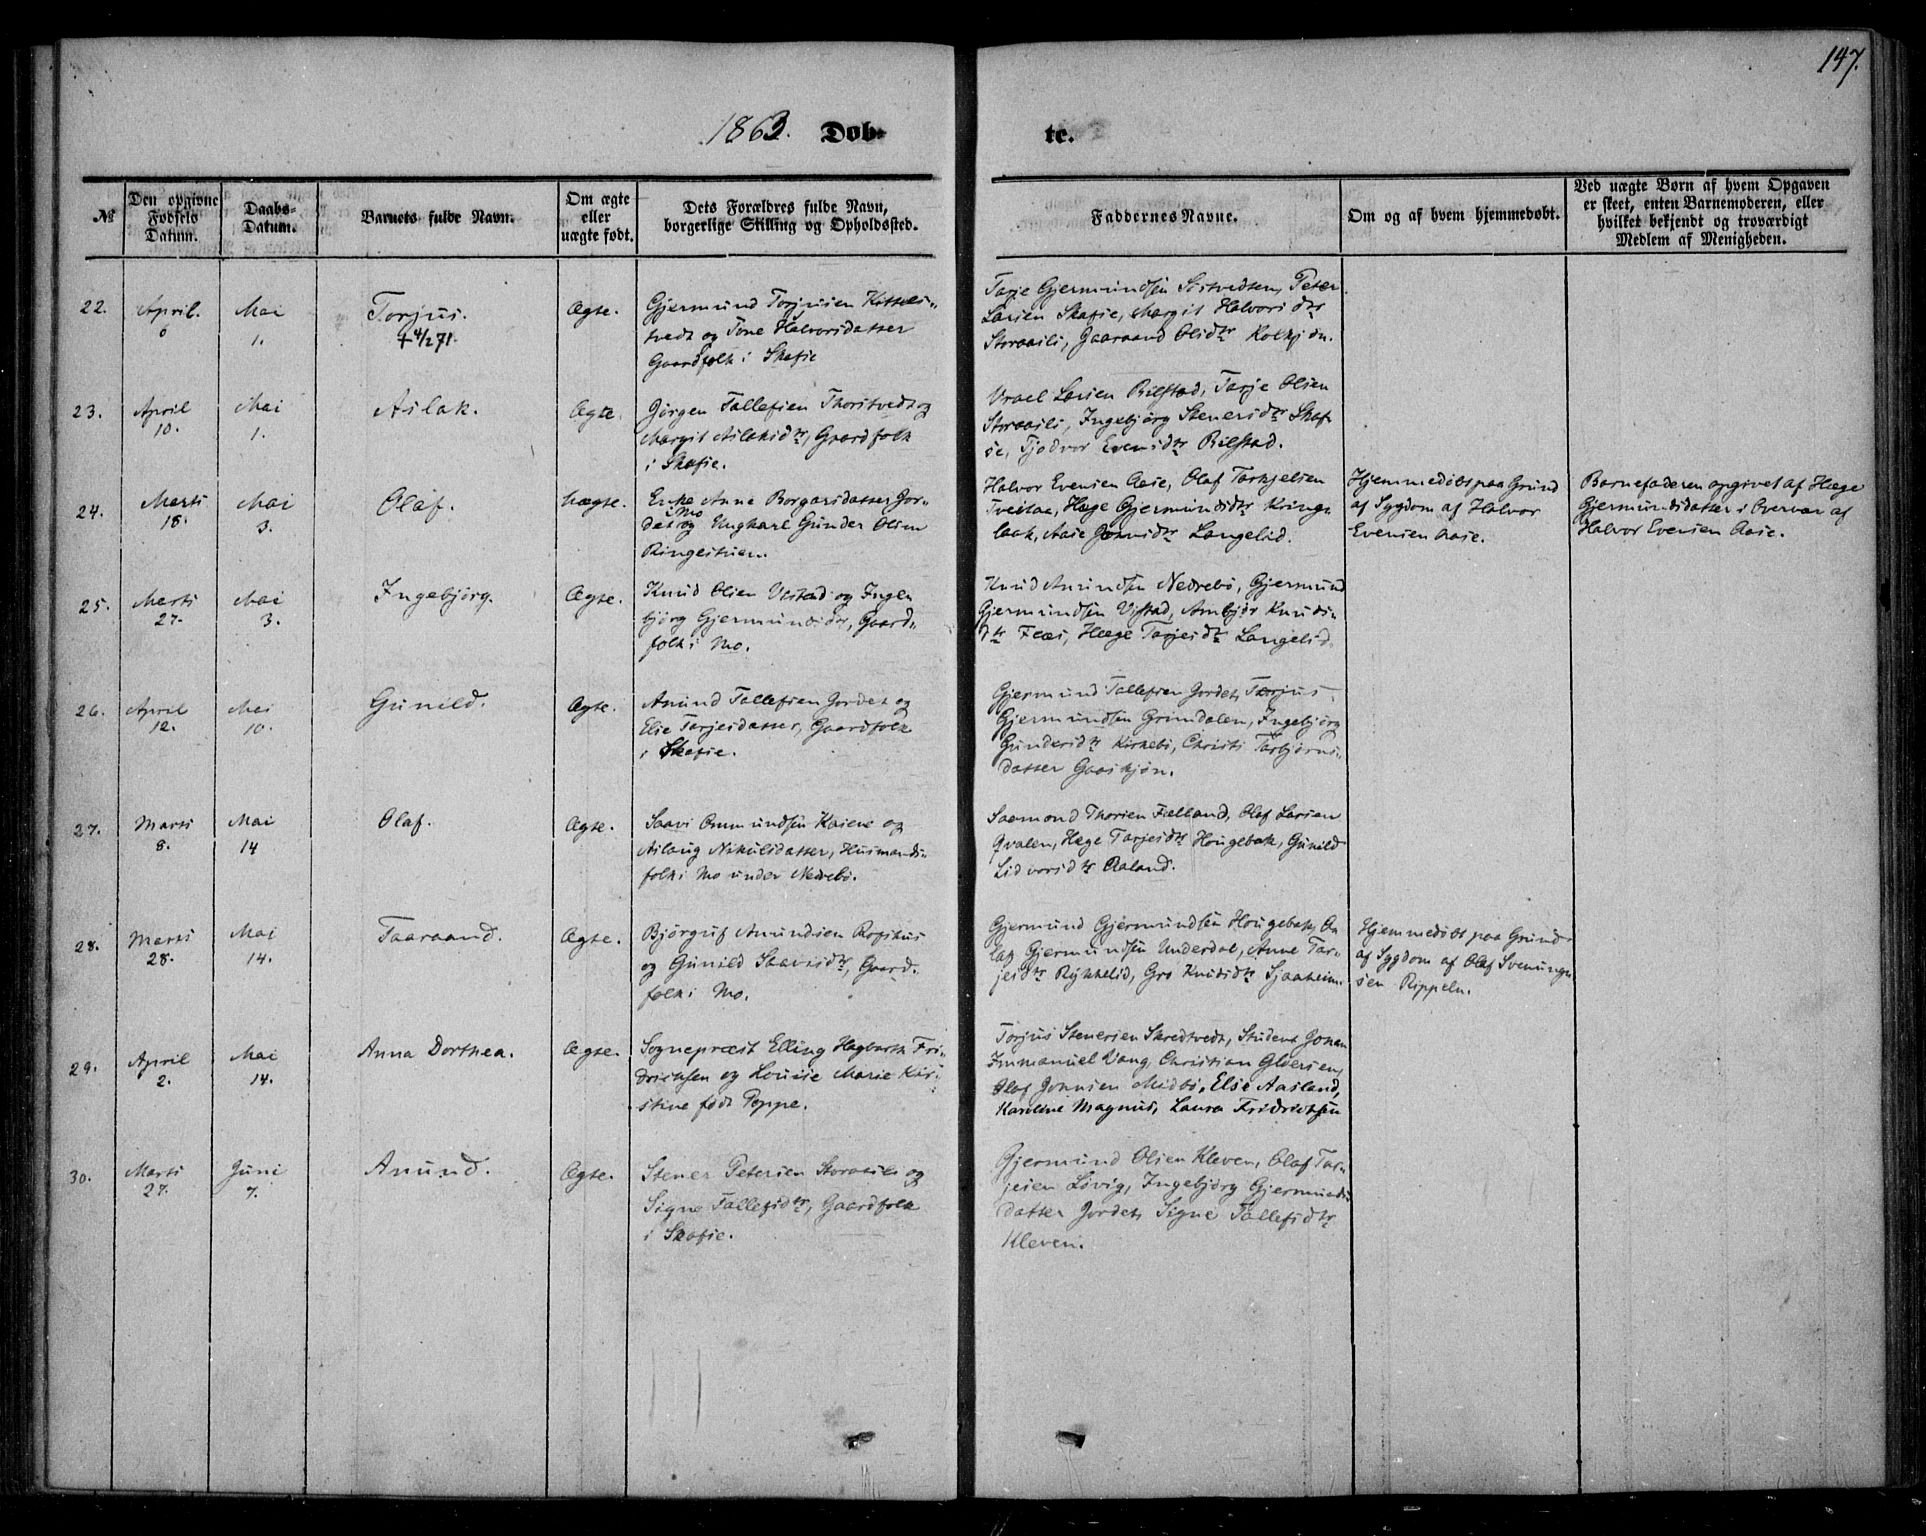 147.
1863. Døb-
te.
№
Den opgivne
Fødsels
Datum.
Daabs-
Datum.
Barnets fulde Navn.
Om ægte
eller
uægte født.
Dets Forældres fulde Navn,
borgerlige Stilling og Opholdssted.
Faddernes Navne.
Om og af hvem hjemmedøbt.
Ved uægte Børn af hvem Opgaven
er skeet, enten Barnemoderen, eller
hvilket bekjendt og troværdigt
Medlem af Menigheden.
22.
April.
6
Mai
1.
Torjus.
† 4/2 71.
Ægte.
Gjermund Torjussen Kittels-
tvedt og Tone Halvorsdatter
Gaardfolk i Skafse
Tarje Gjermundsen Sistvedten, Peter
Larsen Skafse, Margit Halvorsdtr
Storaasli, Gaaraand Olsdtr
23.
April
10.
Mai
1.
Aslak.
Ægte.
Jørgen Tallefsen Thorstvedt og
Margit Aslaksdtr, Gaardfolk
i Skafse.
Vrael Larsen Bilstad, Tarje Olsen
Storaasli, Ingebjørg Stenersdtr Skaf-
se, Tjodvor Evensdtr Bilstad.
24.
Marts
18.
Mai
3.
Olaf.
Uægte.
Enke Anne Borgarsdatter Jor-
det i Mo og Ungkarl Gunder Olsen
Ringestuen.
Halvor Evensen Aase, Olaf Tarkjelsen
Tveitan, Hæge Gjermundsdtr Kringe-
laak, Aase Jonsdtr Langelid.
Hjemmedøbt paa Grund
af Sygdom af Halvor
Evensen Aase.
Barnefaderen opgivet af Hæge
Gjermundsdatter i Overvær af
Halvor Evensen Aase.
25.
Marts
27.
Mai
3.
Ingebjørg.
Ægte.
Knud Olsen Vistad og Inge-
bjørg Gjermundsdtr, Gaard-
folk i Mo.
Knud Anundsen Nedrebø, Gjermund
Gjermundsen Vistad, Anbjør Knuds-
dtr Flaas, Hæge Tarjesdtr Langelid
26.
April
12.
Mai
10.
Gunild.
Ægte.
Anund Tallefsen Jordet og
Else Tarjesdatter, Gaardfolk
i Skafse.
Gjermund Tallefsen Jordet, Torjus
Gjermundsen Grimdalen, Ingebjørg
Gundersdtr Kirkebø, Christi Torbjørns-
datter Gaaskjøn.
27.
Marts
8.
Mai
14
Olaf.
Ægte.
Saavi Ommundsen Kasene og
Aslaug Nikulsdatter, Husmands-
folk i Mo under Nedrebø.
Saamond Thorsen Felland, Olaf Larsen
Qvalen, Hæge Tarjesdtr Hougebak, Gunild
Lidvorsdtr Aaland.
28.
Marts
28.
Mai
14.
Taaraand.
Ægte.
Bjørguf Anundsen Rofshus
og Gunild Saavesdtr, Gaard-
folk i Mo.
Gjermund Gjermundsen Hougebak, O-
laf Gjermundsen Underdal, Anne Tar-
jesdtr Rykkelid, Gro Knudsdtr Sjaaheim.
Hjemmedøbt paa Grund
af Sygdom af Olaf Svenung-
sen Rippeln.
29.
April
2.
Mai
14.
Anna Dorthea.
Ægte.
Sognepræst Elling Hagbarth Fri-
drichsen og Louise Marie Kir-
stine født Poppe.
Torjus Stenersen Skredtvedt, Student Johan
Immanuel Vang, Christian Gløersen,
Olaf Jonnsen Midbø, Else Aasland,
Karoline Magnus, Laura Fridrichsen
30.
Marts
27.
Juni
7.
Anund.
Ægte.
Stener Petersen Storaasli og
Signe Tallefsdtr, Gaardfolk
i Skafse.
Gjermund Olsen Kleven, Olaf Tar-
jesen Løvig, Ingebjørg Gjermunds-
datter Jordet, Signe Tallefsdtr
Kleven.